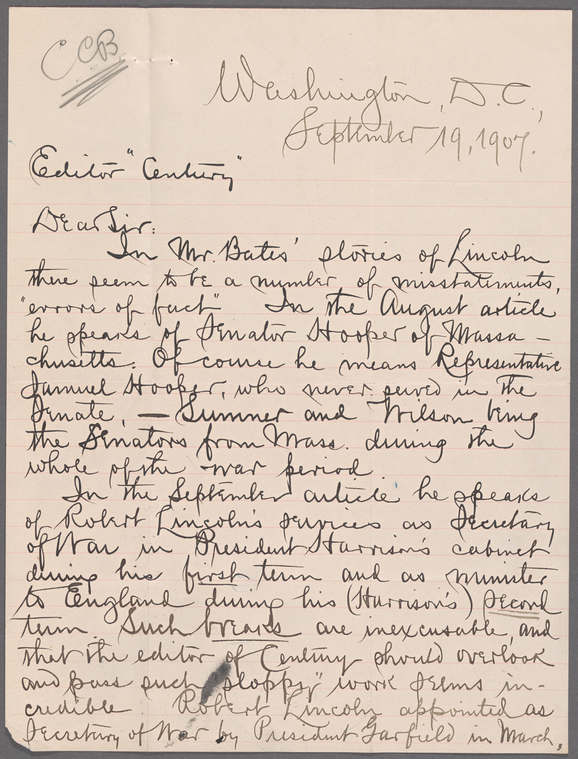 CCB
Washington, D.C.,
September 19, 1907.
Editor "Century"
Dear Sir:
In Mr. Bates' stories of Lincoln
there seem to be a number of misstatements,
"errors of fact" In the August article
he speaks of Senator Hooper of Massa-
chusetts. Of course he means Representative
Samuel Hooper, who never served in the
Senate, — Sumner and Wilson being
the Senators from Mass. during the
whole of the war period
In the September article he speaks
of Robert Lincoln's services as Secretary
of War in President Harrison's cabinet
during his first term and as minister
to England during his (Harrison's) second
term. Such breaks are inexcusable, and
that the editor of Century should overlook
and pass such "sloppy" work seems in-
credible Robert Lincoln appointed as
Secretary of War by President Garfield in March,